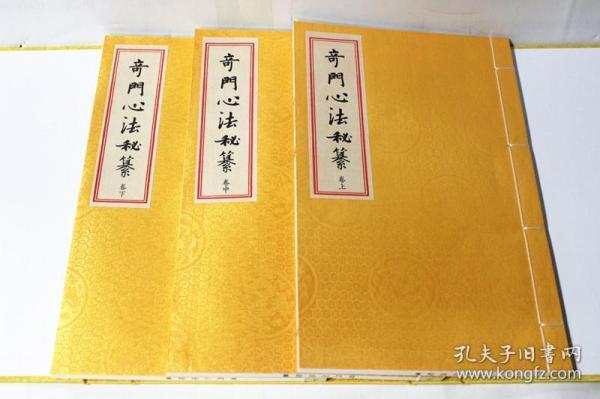 奇門心法秘纂
卷下
奇門心法秘纂
卷中
奇門心法秘纂
卷上
孔夫子旧書网
www.kongfz.com